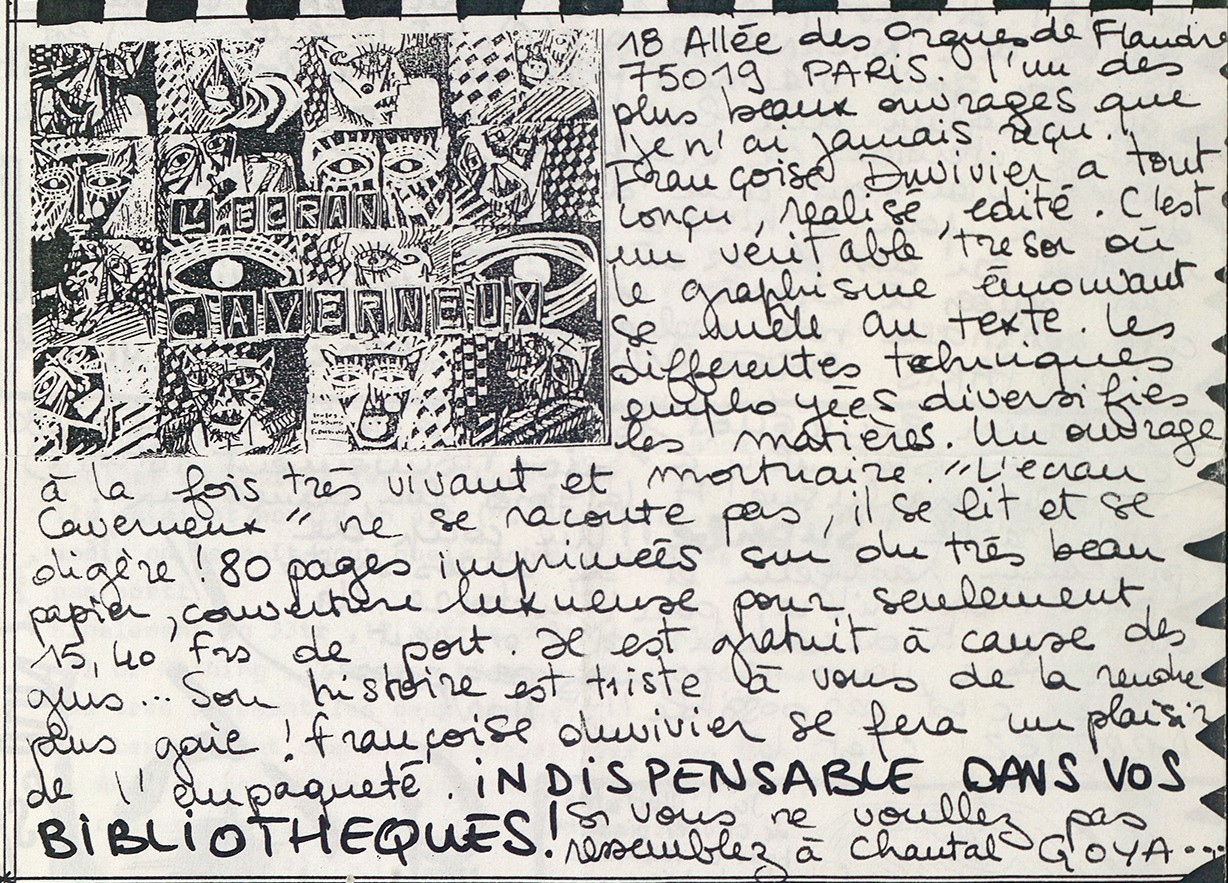 L'ECRAN
CAVERNEUX
18 Allée des Orgues de Flandre
75019 PARIS. l'un des
plus beaux ouvrages que
je n'ai jamais reçu !
Françoise Duvivier a tout
conçu, réalisé, edité. C'est
un véritable tresor où
le graphisme émouvant
se mêle au texte. Les
differentes techniques
employées diversifies
les matières. Un ouvrage
à la fois très vivant et mortuaire. "L'écran
Caverneux" ne se raconte pas, il se lit et se
digère ! 80 pages imprimées sur du très beau
papier, couverture luxueuse pour seulement
15,40 frs de port. Il est gratuit à cause des
Son histoire est triste à vous de la rendre
plus gaie ! françoise duvivier se fera un plaisir
de l'empaqueté iNDiSPENSABLE DANS VOS
BiBLiOTHEQUES! Si vous ne voullez pas
ressemblez à Chantal GOYA...